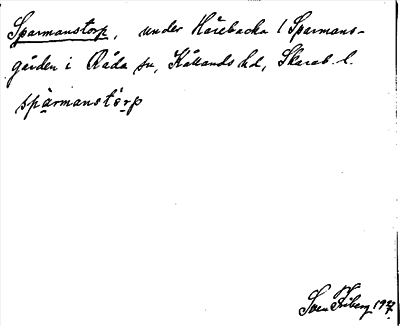 Sparmanstorp, under Hårebacka 1 Sparmans-
gården i Råda sn, Kållands hd, Skarab. l.
spàrmanstórp
Sven Friberg 1927.